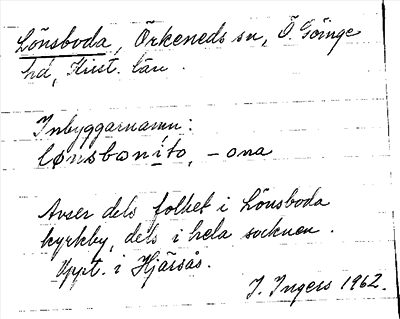 Lönsboda, Örkeneds sn, Ö. Göinge
hd, Krist. län.
Inbyggarnamn:
lønsbɷnito, -ona
Avser dels folket i Lönsboda
kyrkby, dels i hela socknen.
Uppt. i Hjärsås.
I. Ingers 1962.